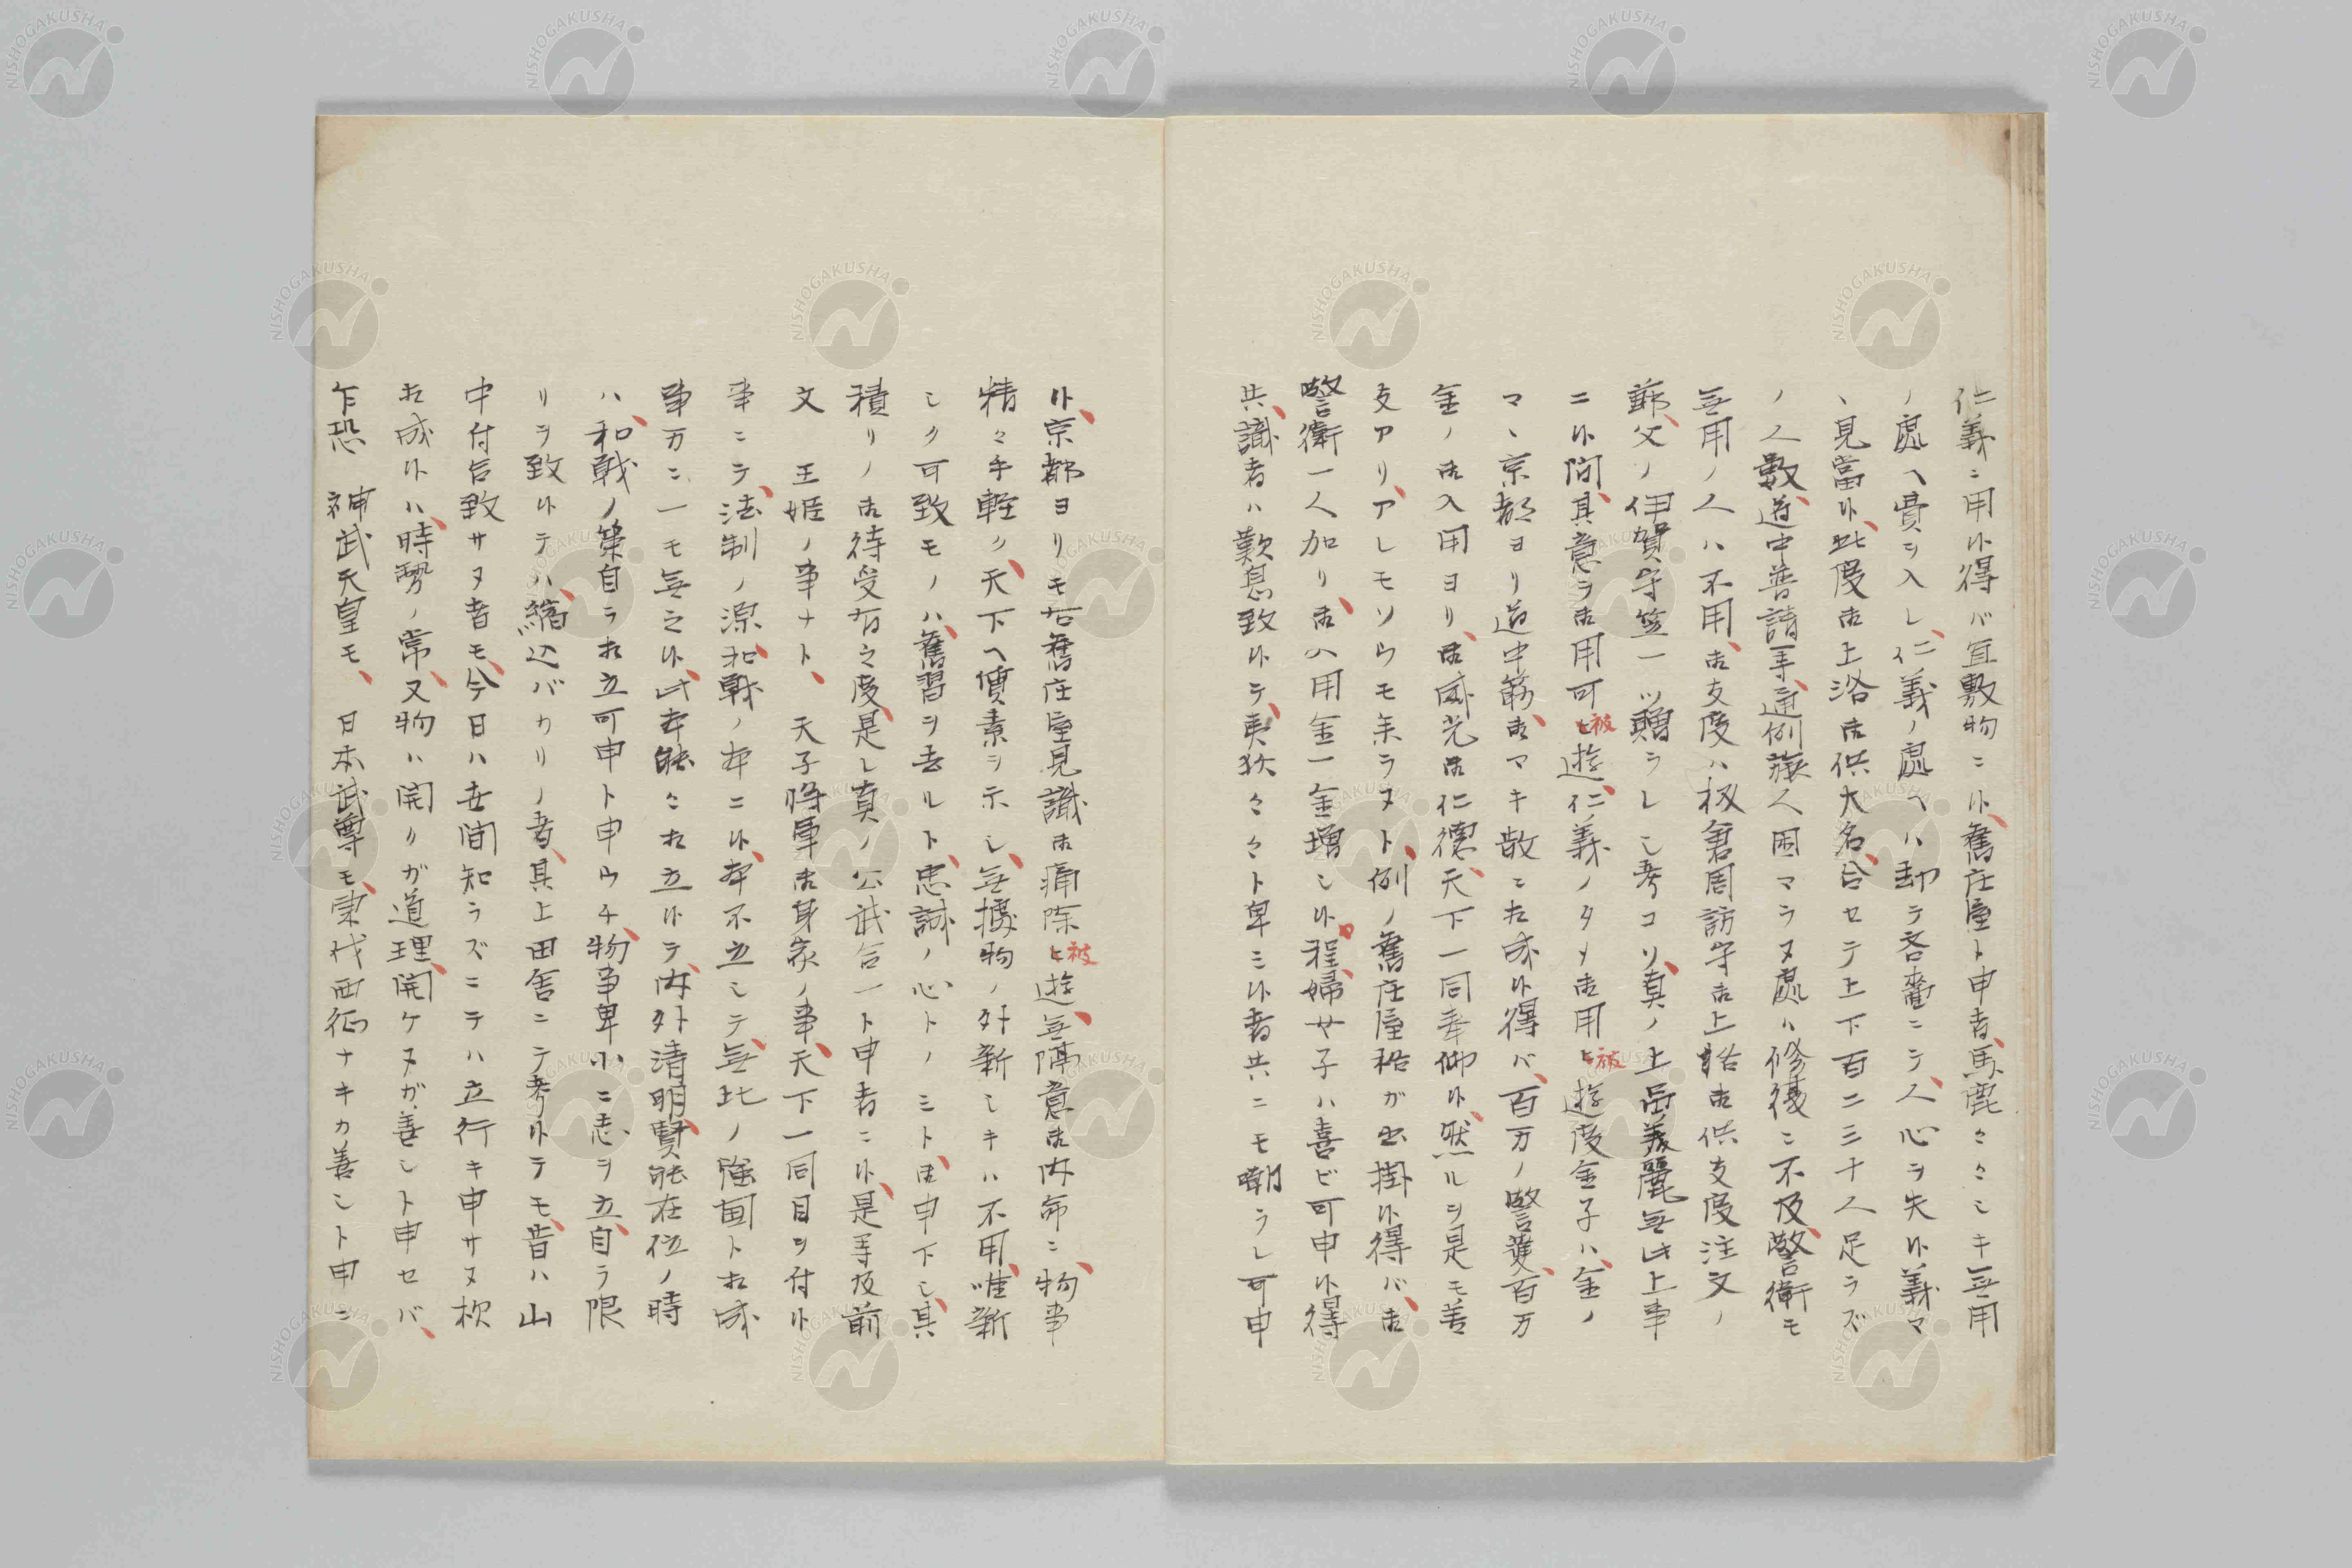 仁義ニ用候得バ宜敷物ニ候、舊庄屋ト申者、馬鹿々々シキ無用
ノ處ヘ費ヲ入レ、仁義ノ處ヘハ却テ吝嗇ニテ、人心ヲ失候義マ
ヽ見當候、此度御上洛御供大名、合セテ上下百二三十人足ラズ
ノ人數、道中普請等、通例旅人困マラヌ處ハ修復ニ不及、警衛モ
無用ノ人ハ不用、御支度ハ板倉周訪守御上路御供支度注文ノ
節、父ノ伊賀守笠一ツ贈ラレシ考コソ、真ノ上品美麗無此上事
ニ候間、其意ヲ御用可被遊、仁義ノタメ御用被遊度金子ハ、金ノ
マヽ京都ヨリ道中筋、御マキ散ニ相成候得バ、百万ノ警護、百万
金ノ御入用ヨリ、御威光御仁德、天下一同奉仰候、然ルヲ是モ善
支アリ、アレモソウモ参ラヌト、例ノ舊庄屋格ガ出掛候得バ、御
警衛一人加リ、御入用金一金増シ候程、婦女子ハ喜ビ可申候得
共、識者ハ歎息致候テ、夷狄々々ト卑ミ候者共ニモ嘲ラレ可申
候、京都ヨリモ右舊庄屋見識御痛除被遊、無隔意御内命ニ、物事
精々手軽ク、天下ヘ價素ヲ示シ、無據物ノ外新シキハ不用、唯新
シク可致モノハ、舊習ヲ去ルト、忠誠ノ心トノミト、御申下シ、其
積リノ御待受有之度、是レ真ノ公武合一ト申者ニ候、是等及前
文　王姫ノ事ナト、　天子將軍御身家ノ事、天下一同目ヲ付候
事ニテ、法制ノ源、和戰ノ本ニ候、本不立シテ、無比ノ強国ト相成
事万ニ一モ無之候、此本能々相立候テ、内外清明、賢能在位ノ時
ハ、和戰ノ策自ラ相立可申ト申ウチ、物事卑小ニ志ヲ立、自ラ限
リヲ致候テハ、縮込バカリノ者、其上田舍ニテ考候テモ、昔ハ山
中付合致サヌ者モ、今日ハ世間知ラズニテハ立行キ申サヌ枚
相成候ハ、時勢ノ常、又物ハ開クガ道理、開ケヌガ善シト申セバ、
乍恐　神武天皇モ、　日本武尊モ、東伐西征ナキカ善シト申ニ